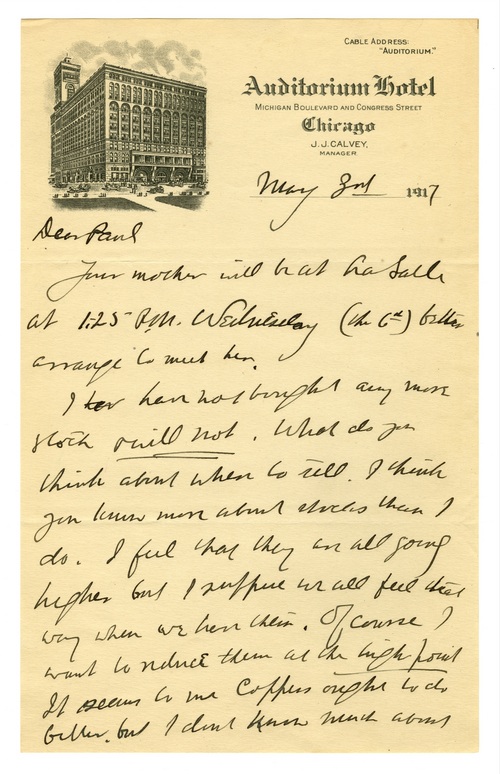 CABLE ADDRESS:
"AUDITORIUM."
Auditorium Hotel
MICHIGAN BOULEVARD AND CONGRESS STREET
Chicago
J. J. CALVEY,
MANAGER
May 3rd 1917
Dear Paul
Your mother will be at La Salle
at 1:25 P.M. Wednesday (the 6th) better
arrange to meet her.
I have not bought any more
stock & will not. What do you
think about when to sell. I think
you know more about stocks than I
do. I feel that they are all going
higher but I suppose we all feel that
way when we have them. Of course I
want to reduce them at the high point
It seems to me Coppers ought to do
better, but I dont know much about